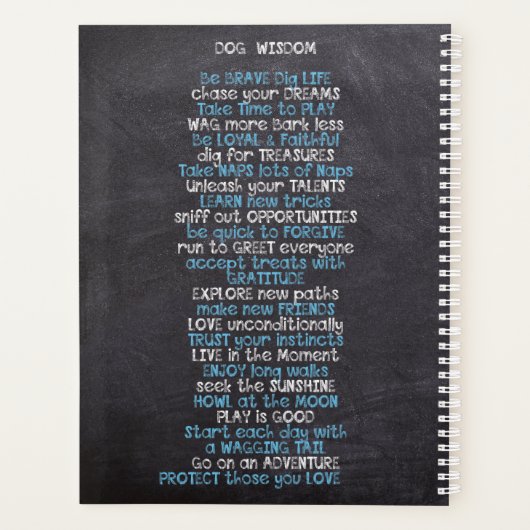 DOG WISDOM
Be BRAVE Dig LIFE
chase your DREAMS
Take Time to PLAY
WAG more Bark less
Be LOYAL & Faithful
dig for TREASURES
Take NAPS lots of Naps
Unleash your TALENTS
LEARN new tricks
sniff out OPPORTUNITIES
be quick to FORGIVE
run to GREET everyone
accept treats with
GRATITUDE
EXPLORE new paths
make new FRIENDS
LOVE unconditionally
TRUST your instincts
LIVE in the Moment
ENJOY long walks
seek the SUNSHINE
HOWL at the MOON
PLAY is GOOD
Start each day with
a WAGGING TAIL
Go on an ADVENTURE
PROTECT those you LOVE